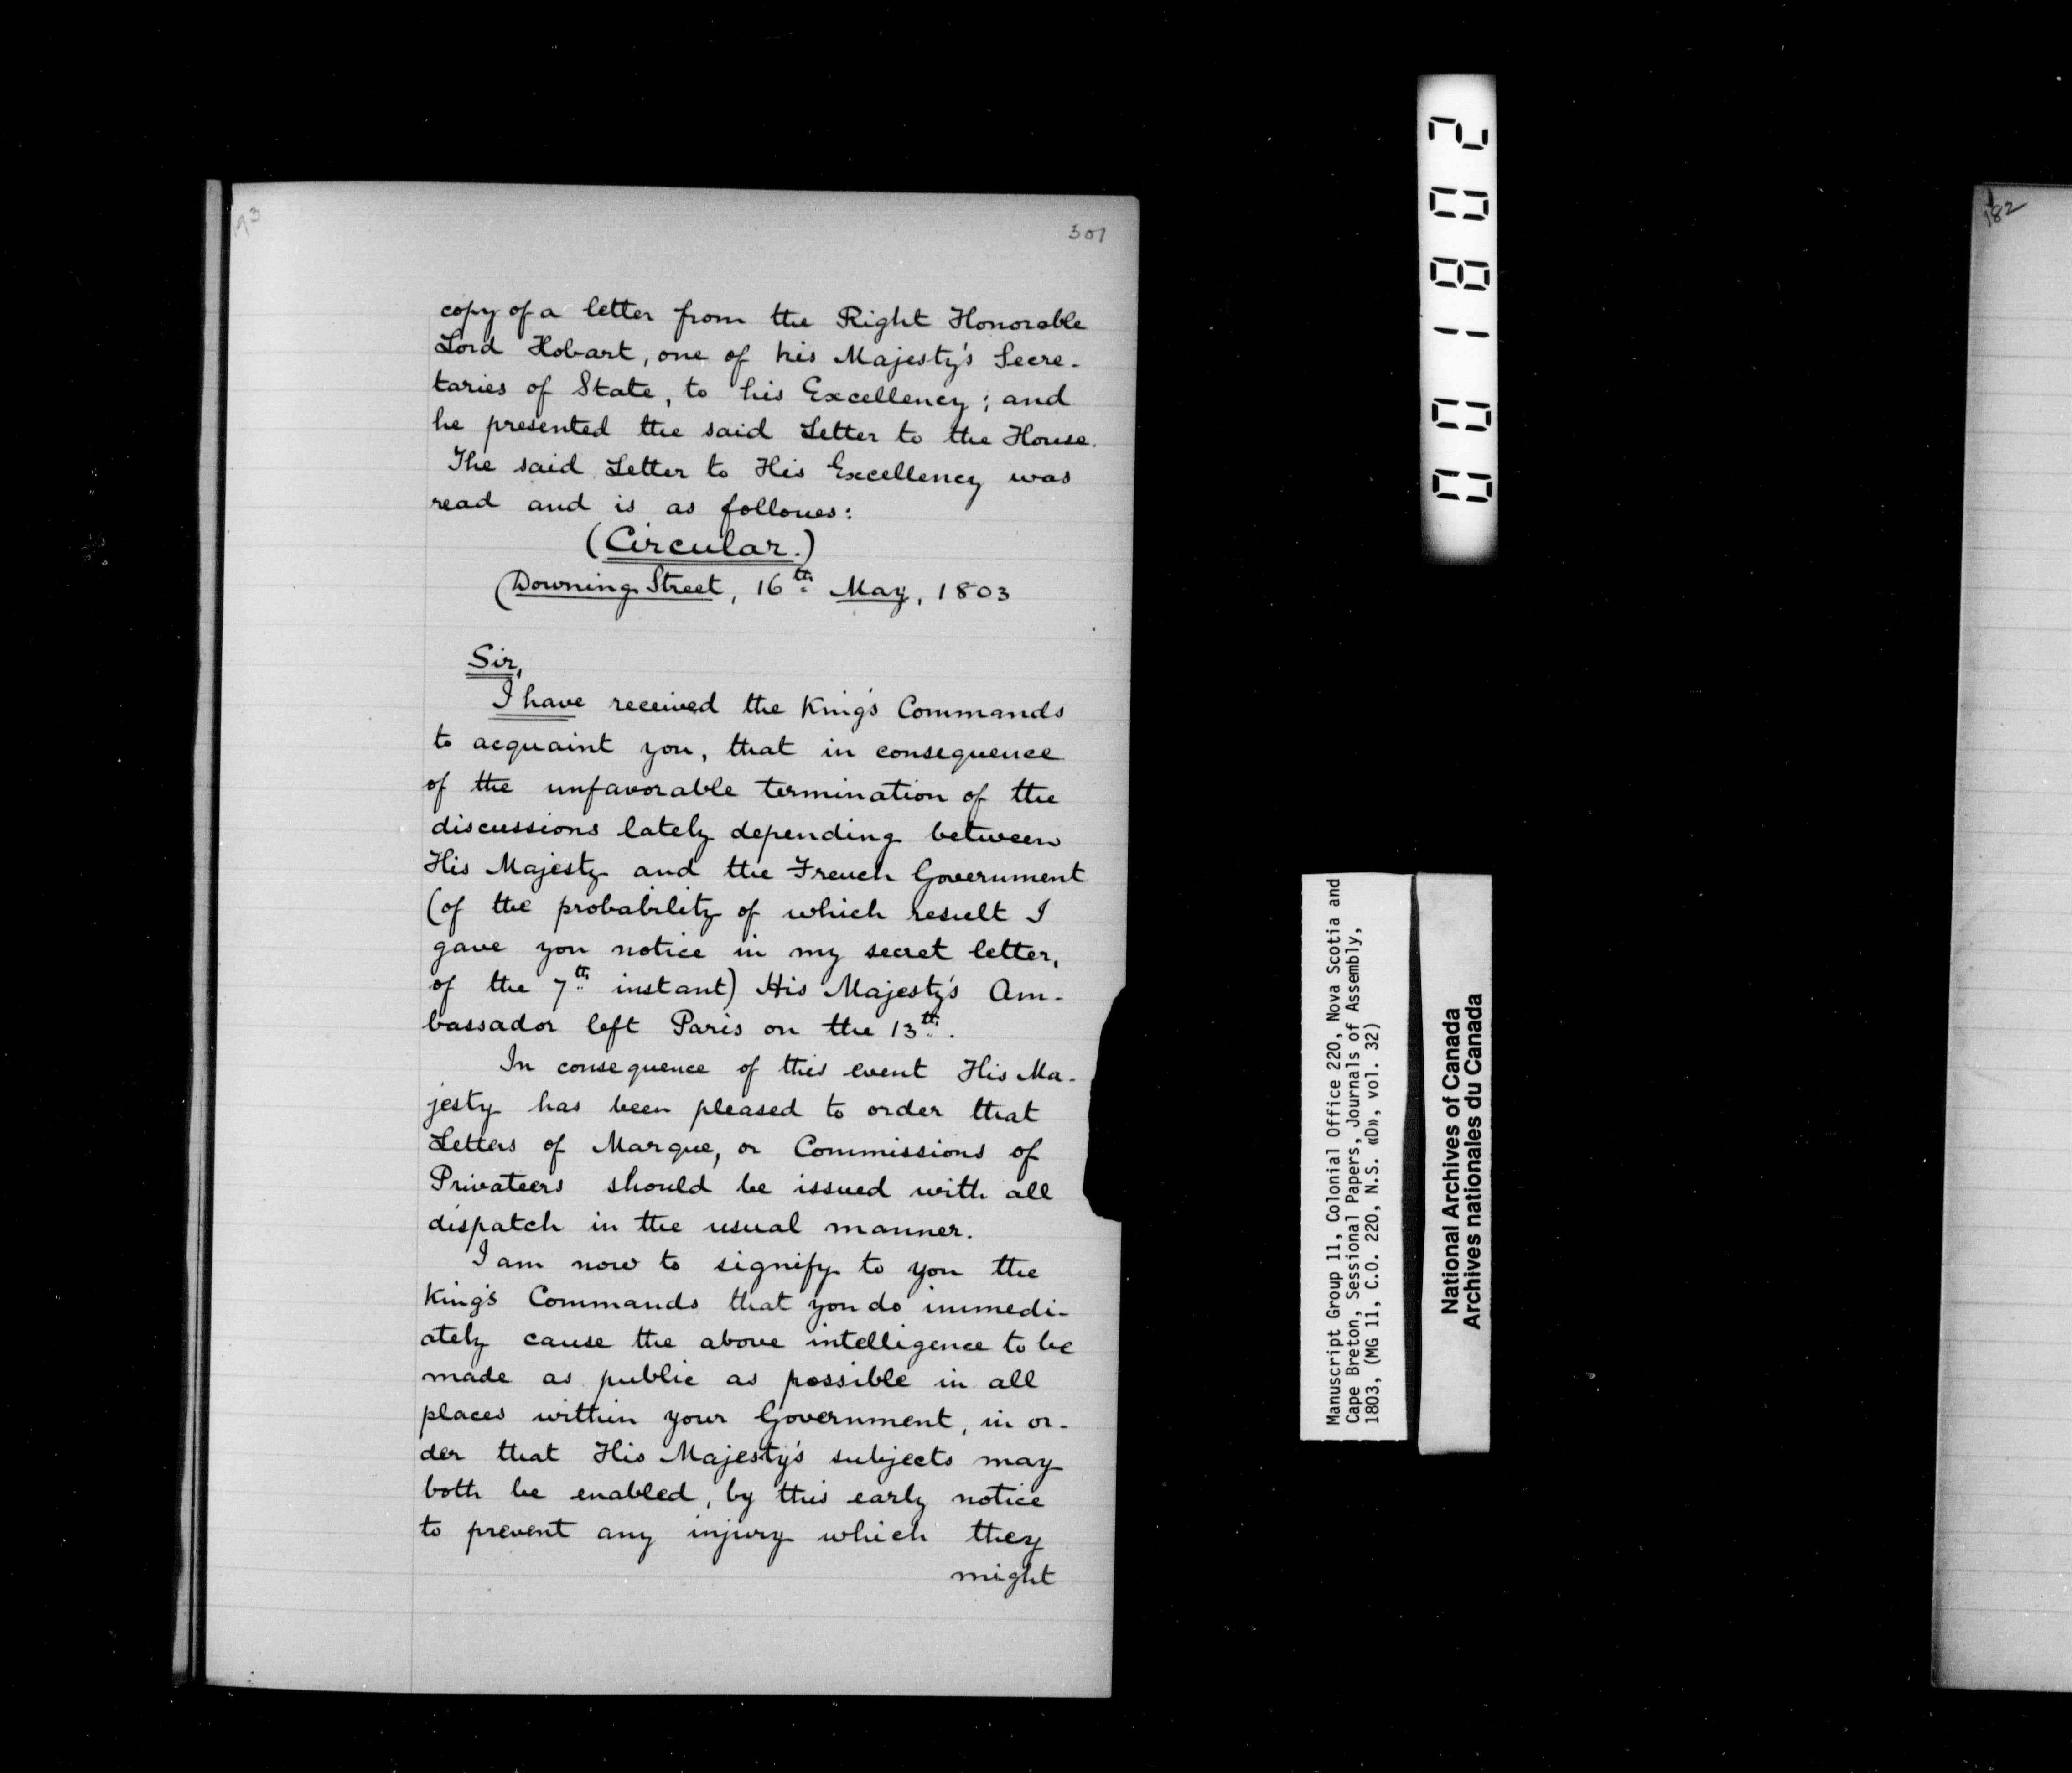 301
copy of a letter from the Right Honorable
Lord Hobart, one of his Majesty's Secre-
taries of State, to his Excellency; and
he presented the said Letter to the House.
The said Letter to His Excellency was
read and is as follows:
(Circular.)
(Downing Street, 16th May, 1803
Sir,
I have received the King's Commands
to acquaint you, that in consequence
of the unfavorable termination of the
discussions lately depending between
His Majesty and the French Government
(of the probability of which result I
gave you notice in my secret letter,
of the 7th instant) His Majesty's Am-
bassador left Paris on the 13th.
In consequence of this event His Ma-
jesty has been pleased to order that
Letters of Marque, or Commissions of
Privateers should be issued with all
dispatch in the usual manner.
I am now to signify to you the
King's Commands that you do immedi-
ately cause the above intelligence to be
made as public as possible in all
places within your Government, in or-
der that His Majesty's subjects may
both be enabled, by this early notice
to prevent any injury which they
might
001802
Manuscript Group 11, Colonial Office 220, Nova Scotia and
Cape Breton, Sessional Papers, Journals of Assembly,
1803, (MG 11, C.O. 220, N.S. «D», vol. 32)
National Archives of Canada
Archives nationales du Canada
182